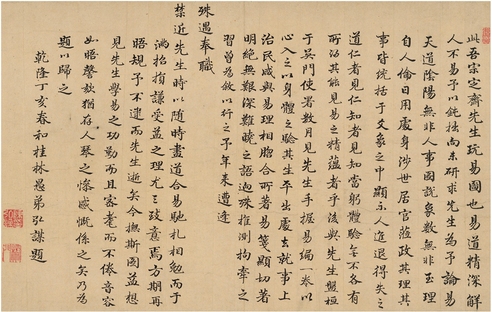 此吾宗定齋先生玩易圖也易道精深解
人不易予以鈍拙尚未研求先生為予論易
天道陰陽無非人事圖說象數無非至理
自人倫日用處身涉世居官蒞政其理其
事皆統括于爻象之中顯示人進退得失之
道仁者見仁知者見知當躬體驗無不各有
所以其能見易之精蘊者乎後與先生盤桓
於吳門使署數月見先生手握易編一卷以
心入之以身體之驗其生平出處去就事上
治民咸與易理相脗合所著易箋顯切著
明絕無艱深難曉之語迥殊推測拘牽之
習曾為敘以行之予年來遭逢
殊遇奉職
禁近先生時以隨時盡道合易馳札相勉而于
滿招損謙受益之理尤三致意焉方期再
晤規予不逮而先生逝矣今撫斯圖益想
見先生學易之功勤而且密耄而不倦音容
如晤謦欬猶存人琴之慟感慨係之矣乃為
題以歸之
乾隆丁亥春和桂林愚弟弘謀題